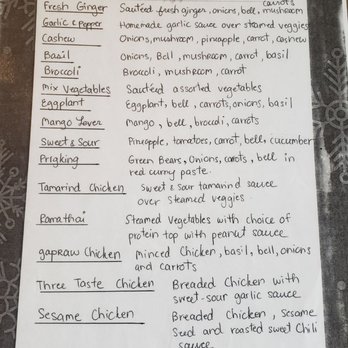 carrots
Fresh Ginger Sauteed fresh ginger, onions, bell, mushroom
Garlic & Pepper Homemade garlic sauce over steamed veggies
Cashew Onions, mushroom, pineapple, carrot, cashew
Basil Onions, Bell, mushroom, carrot, basil
Broccoli Brocoli, mushroom, carrot
mix Vegetables Sauteed assorted vegetables
Eggplant Eggplant, bell, carrots, onions, basil
Mango Lover Mango, bell, brocoli, carrots
Sweet & Sour Pineapple, tomatoes, carrot, bell, cucumber
Prigking Green Beans, Onions, carrots, bell in
red curry paste.
Tamarind Chicken Sweet & sour tamarind sauce
over Steamed veggies.
Ramathai Steamed Vegetables with choice of
protein top with peanut sauce
gapraw Chicken Minced Chicken, basil, bell, onions
and carrots
Three Taste Chicken Breaded Chicken with
sweet-sour garlic sauce
Sesame Chicken Breaded Chicken, Sesame
Seed and roasted sweet Chili
sauce